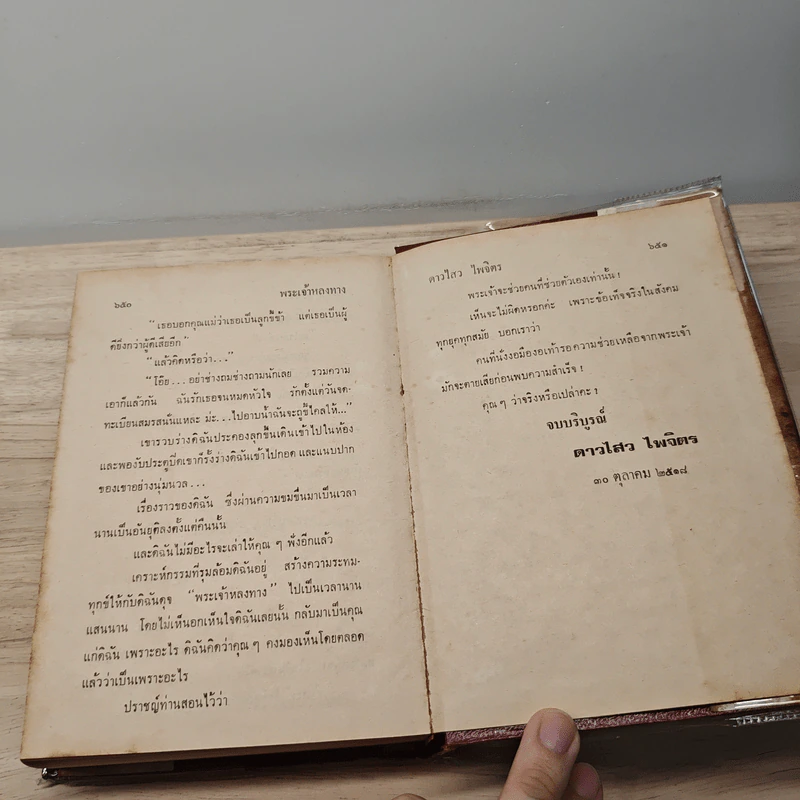 ๖๕๐
พระเจ้าหลงทาง
“เธอบอกคุณแม่ว่าเธอเป็นลูกขี้ข้า แต่เธอเป็นผู้
ดียิ่งกว่าผู้ดีเสียอีก”
“แล้วคิดหรือว่า...”
“โอ๊ย...อย่าช่างถามช่างถามนักเลย รวมความ
เอาก็แล้วกัน ฉันรักเธอจนหมดหัวใจ รักตั้งแต่วันจด-
ทะเบียนสมรสนั่นแหละ มะ...ไปอาบน้ำฉันจะถูขี้ไคลให้...”
เขารวบร่างดิฉันประคองลุกขึ้นเดินเข้าไปในห้อง
และพองับประตูปิดเขาก็รั้งร่างดิฉันเข้าไปกอด และแนบปาก
ของเขาอย่างนุ่มนวล...
เรื่องราวของดิฉัน ซึ่งผ่านความขมขื่นมาเป็นเวลา
นานเป็นอันยุติลงตั้งแต่คืนนั้น
และดิฉันไม่มีอะไรจะเล่าให้คุณ ๆ ฟังอีกแล้ว
เคราะห์กรรมที่รุมล้อมดิฉันอยู่ สร้างความระทม-
ทุกข์ให้กับดิฉันดุจ “พระเจ้าหลงทาง” ไปเป็นเวลานาน
แสนนาน โดยไม่เห็นอกเห็นใจดิฉันเลยนั้น กลับมาเป็นคุณ
แก่ดิฉัน เพราะอะไร ดิฉันคิดว่าคุณ ๆ คงมองเห็นโดยตลอด
แล้วว่าเป็นเพราะอะไร
ปราชญ์ท่านสอนไว้ว่า
ดาวไสว ไพจิตร
๖๕๑
พระเจ้าจะช่วยคนที่ช่วยตัวเองเท่านั้น !
เห็นจะไม่ผิดหรอกค่ะ เพราะข้อเท็จจริงในสังคม
ทุกยุคทุกสมัย บอกเราว่า
คนที่นั่งงอมืองอเท้ารอความช่วยเหลือจากพระเจ้า
มักจะตายเสียก่อนพบความสำเร็จ !
คุณ ๆ ว่าจริงหรือเปล่าคะ ?
จบบริบูรณ์
ดาวไสว ไพจิตร
๓๐ ตุลาคม ๒๕๑๘